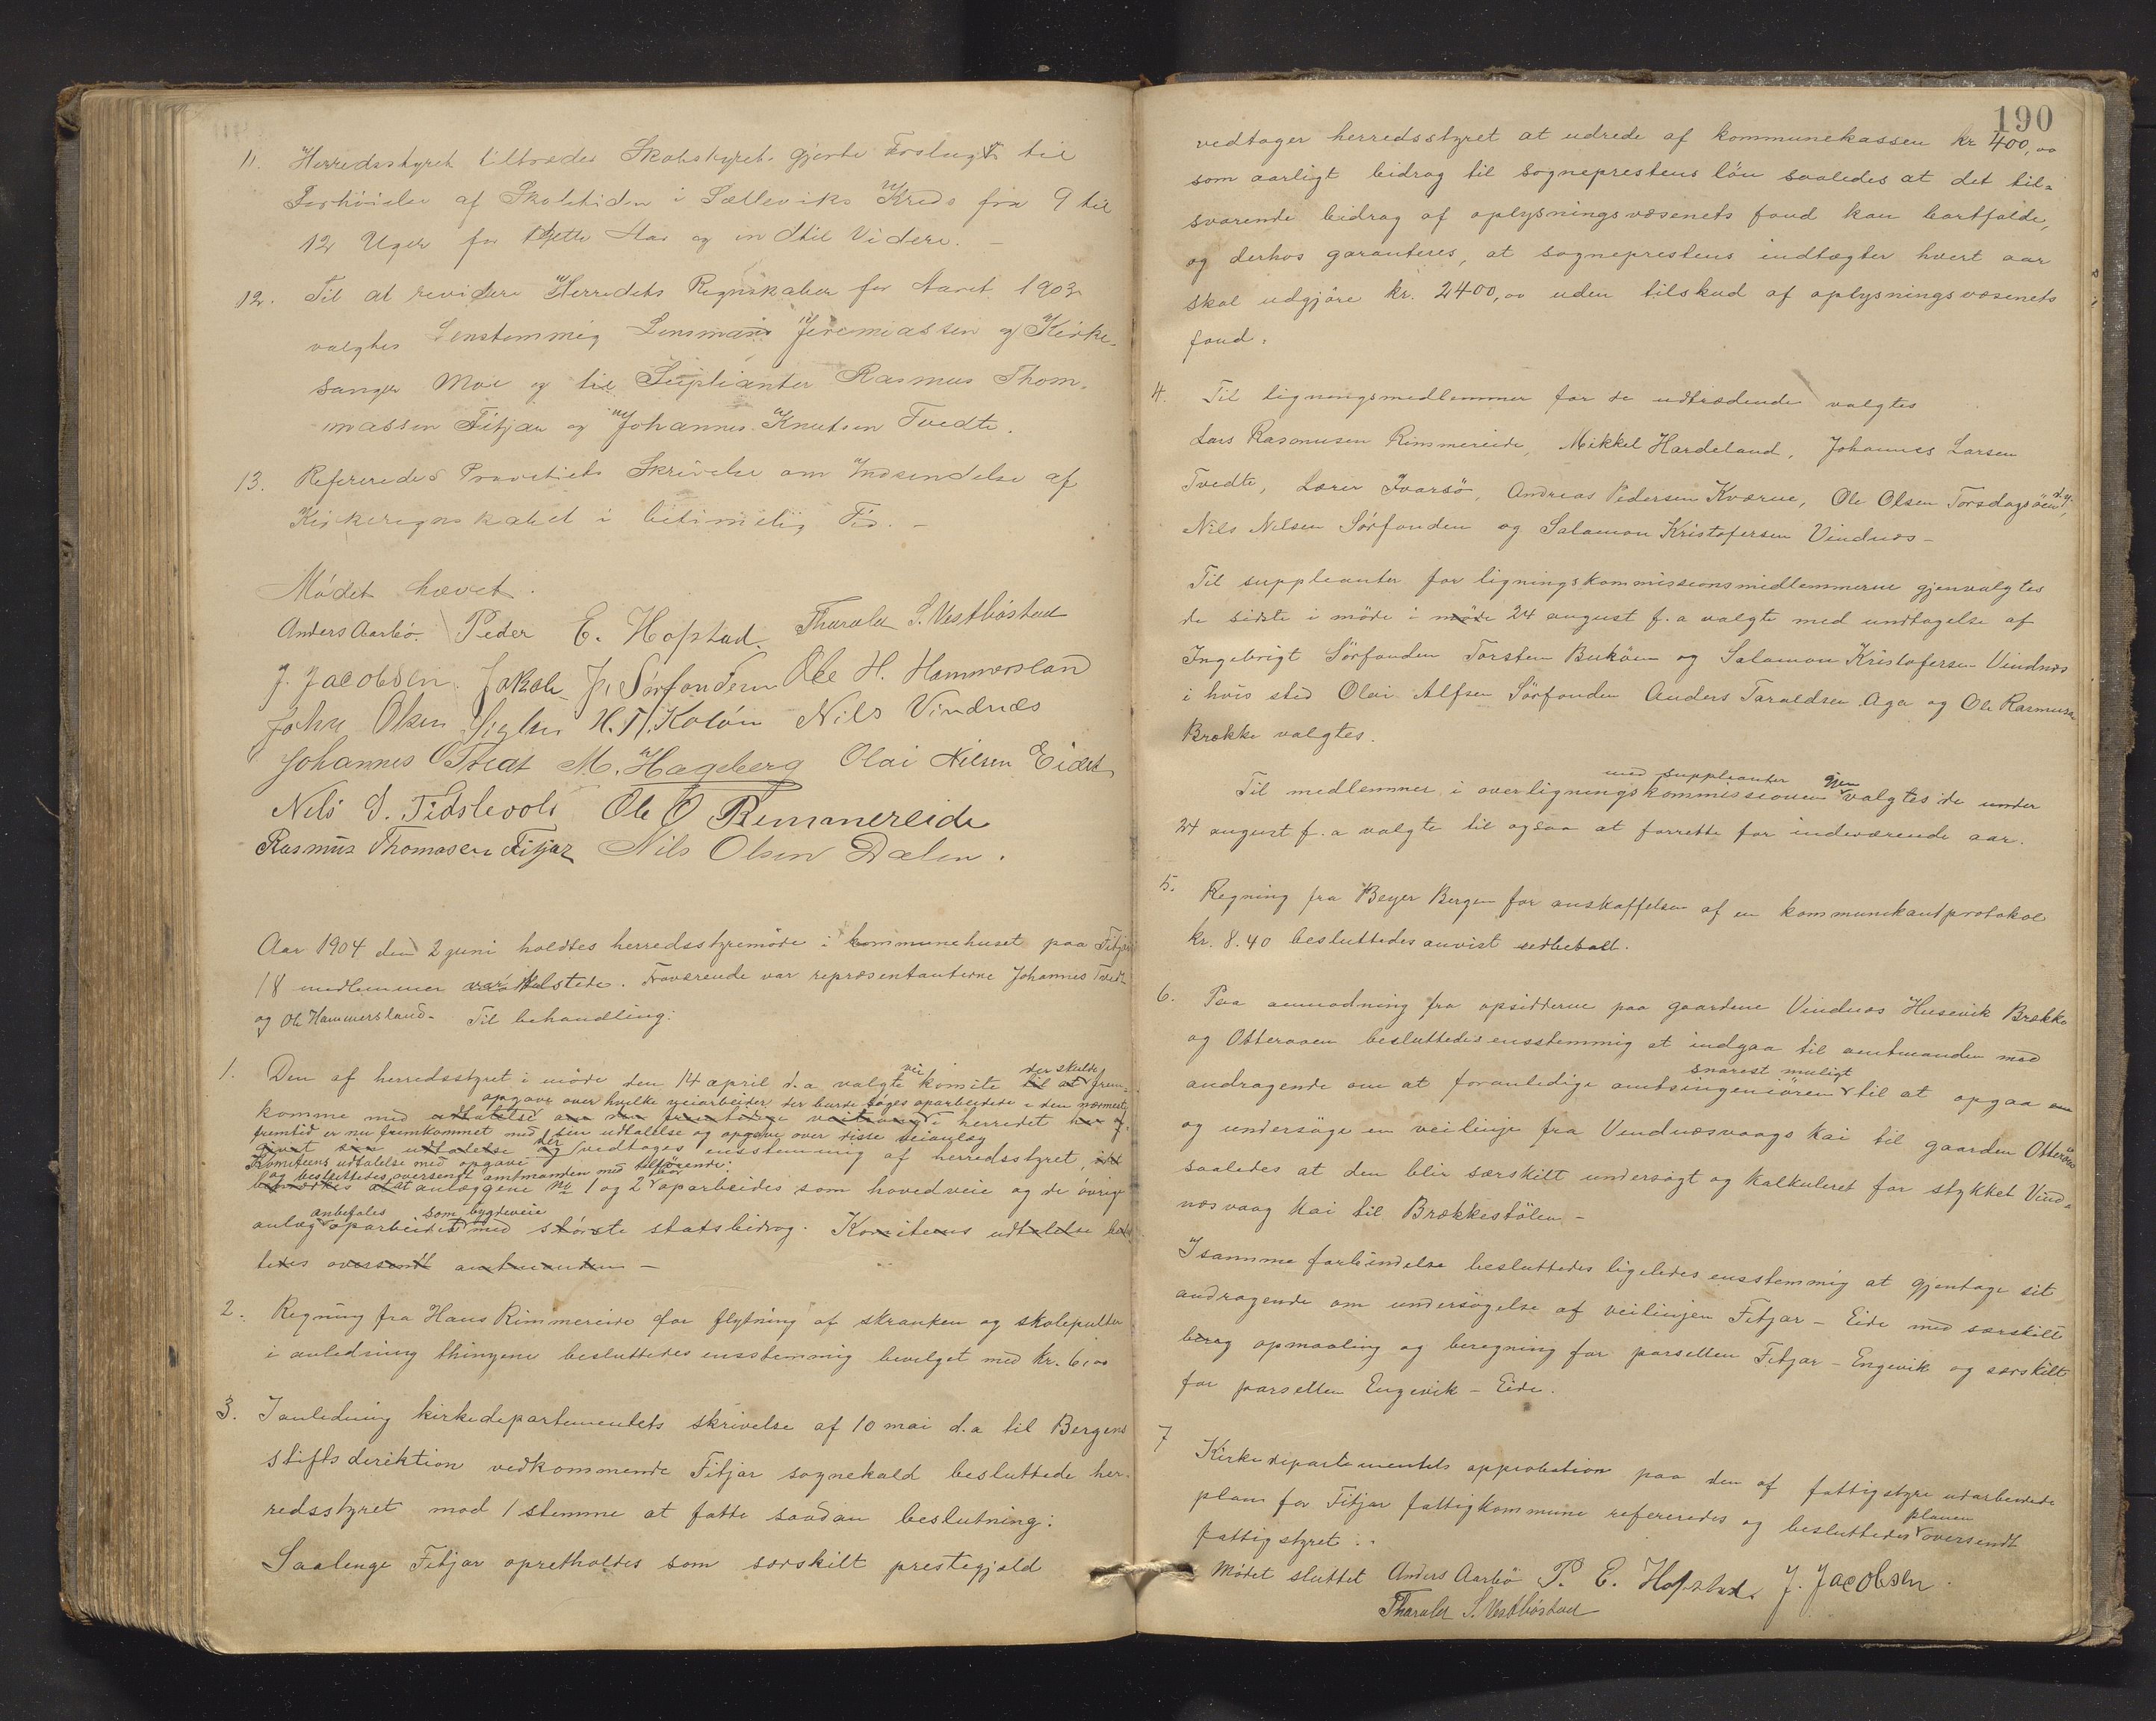 11. Herredsstyret tiltræder Skolestyrets gjorte Forslag til
Forhøielse af Skoletiden i Sælleviks Kreds fra 9 til
12 Uger for dette Aar og indtil Videre. –
12. Til at revidere Herredets Regnskaber for Aaret 1903
valgtes Eenstemmig Lensmand Jeremiassen og Kirke-
sanger Moe og til Suplianter Rasmus Thom-
massen Fitjar og Johannes Knutsen Tvedte.
13. Refereredes Provstiets Skrivelse om Indsendelse af
Kirkeregnskabet i betimelig Tid. –
Mödet hævet.
Anders Aarbö. Peder E. Hofstad. Tharald S. Vestböstad
J. Jacobsen. Jakob J. Sörfonden Ole H. Hammersland
Johne Olsen H. T. Kolöen Nils Vindnæs
Johannes Tvedt M. Hageberg Olai Nilsen Eidet
Nils D. Tislevoll Ole O Rimmereide
Rasmus Thomasen Fitjar Nils Olsen Dalen.
Aar 1904 den 2 juni holdtes herredsstyremöde i kommunehuset paa Fitjar
18 medlemmer var tilstede. Fraværende var repræsentanterne Johannes Tvedt
og Ole Hammersland. Til behandling:
1. Den af herredsstyret i möde den 14 april d.a. valgte vei komite til at der skulde frem-
opgave over hvilke veiarbeider der burde söges oparbeidede i den nærmeste
komme med udtalelse om den fremtidige i herredet har og
fremtid er nu fremkommet med sin udtalelse og opgave over disse veianlæg
givet sin udtalelse og der vedtages eenstemmig af herredsstyret,
Komiteens udtalelse med opgave
og besluttedes oversendt amtmanden med tilföiende:
at anlæggene No 1 og 2 bör oparbeides som hovedveie og de övrige
anbefales som bygdeveie
anlæg oparbeidet med störste statsbidrag. Komiteens udtalelse
oversendt amtmanden –
2. Regning fra Hans Rimmereide for flytning af skranken og skolepulter
i anledning thingene besluttedes eensstemmig bevilget med kr. 6,00
3. I anledning kirkedepartementets skrivelse af 10 mai d.a. til Bergens
stiftsdirektion vedkommende Fitjar sognekald besluttede her-
redsstyret mod 1 stemme at fatte saadan beslutning:
Saalenge Fitjar opretholdes som særskilt prestegjeld
190
vedtager herredsstyret at udrede af kommunekassen kr 400,00
som aarligt bidrag til sogneprestens lön saaledes at det til-
svarende bidrag af oplysningsvæsenets fond kan bortfalde,
og derhos garanteres, at sogneprestens indtægter hvert aar
skal udgjöre kr. 2400,00 uden tilskud af oplysningsvæsenets
fond.
4. Til ligningsmedlemmer for de udtrædende valgtes
Lars Rasmusen Rimmereide, Mikkel Hardeland, Johannes Larsen
Tvedte, Lærer Ivarsö, Andreas Pedersen Kværne, Ole Olsen Torsdagsöen d.y.,
Nils Nilsen Sörfonden og Salamon Kristofersen Vindnæs –
Til suppleanter for ligningskommissionsmedlemmerne gjenvalgtes
de sidste i möde i möde 24 august f.a valgte med undtagelse af
Ingebrigt Sörfonden Torsten Buköen og Salamon Kristofersen Vindnæs
i hvis sted Olai Alfsen Sörfonden Anders Taraldsen Aga og Ole Rasmusen
Brække valgtes.
med suppleanter gjen
Til medlemmer i overligningskommissionen valgtes de under
24 august f.a valgte til ogsaa at forrette for indeværende aar.
5. Regning fra Beyer Bergen for anskaffelsen af en kommunikantprotokol
kr. 8.40 besluttedes anvist udbetalt.
6. Paa anmodning fra opsidderne paa gaardene Vindnæs Husevik Brække
og Otteraaen besluttedes eensstemmig at indgaa til amtmanden med
snarest muligt
andragende om at foranledige amtsingeniören til at opgaa en
og undersöge en veilinje fra Vindnæsvaags kai til gaarden Otteröen
saaledes at den blir særskilt undersögt og kalkuleret for stykket Vind-
næsvaag kai til Brækkestölen –
I samme forbindelse besluttedes ligeledes eensstemmig at gjentage sit
andragende om undersögelse af veilinjen Fitjar – Eide med særskilt
berog opmaaling og beregning for parsellen Fitjar – Engevik og særskilt
for parsellen Engevik – Eide.
7 Kirkedepartementets approbation paa den af fattigstyre udarbeidede
plan for Fitjar fattigkommune refereredes og besluttedes planen oversendt
fattigstyret.
Mödet sluttet Anders Aarbö P. E. Hofstad. J. Jacobsen.
Tharald S. Vestböstad